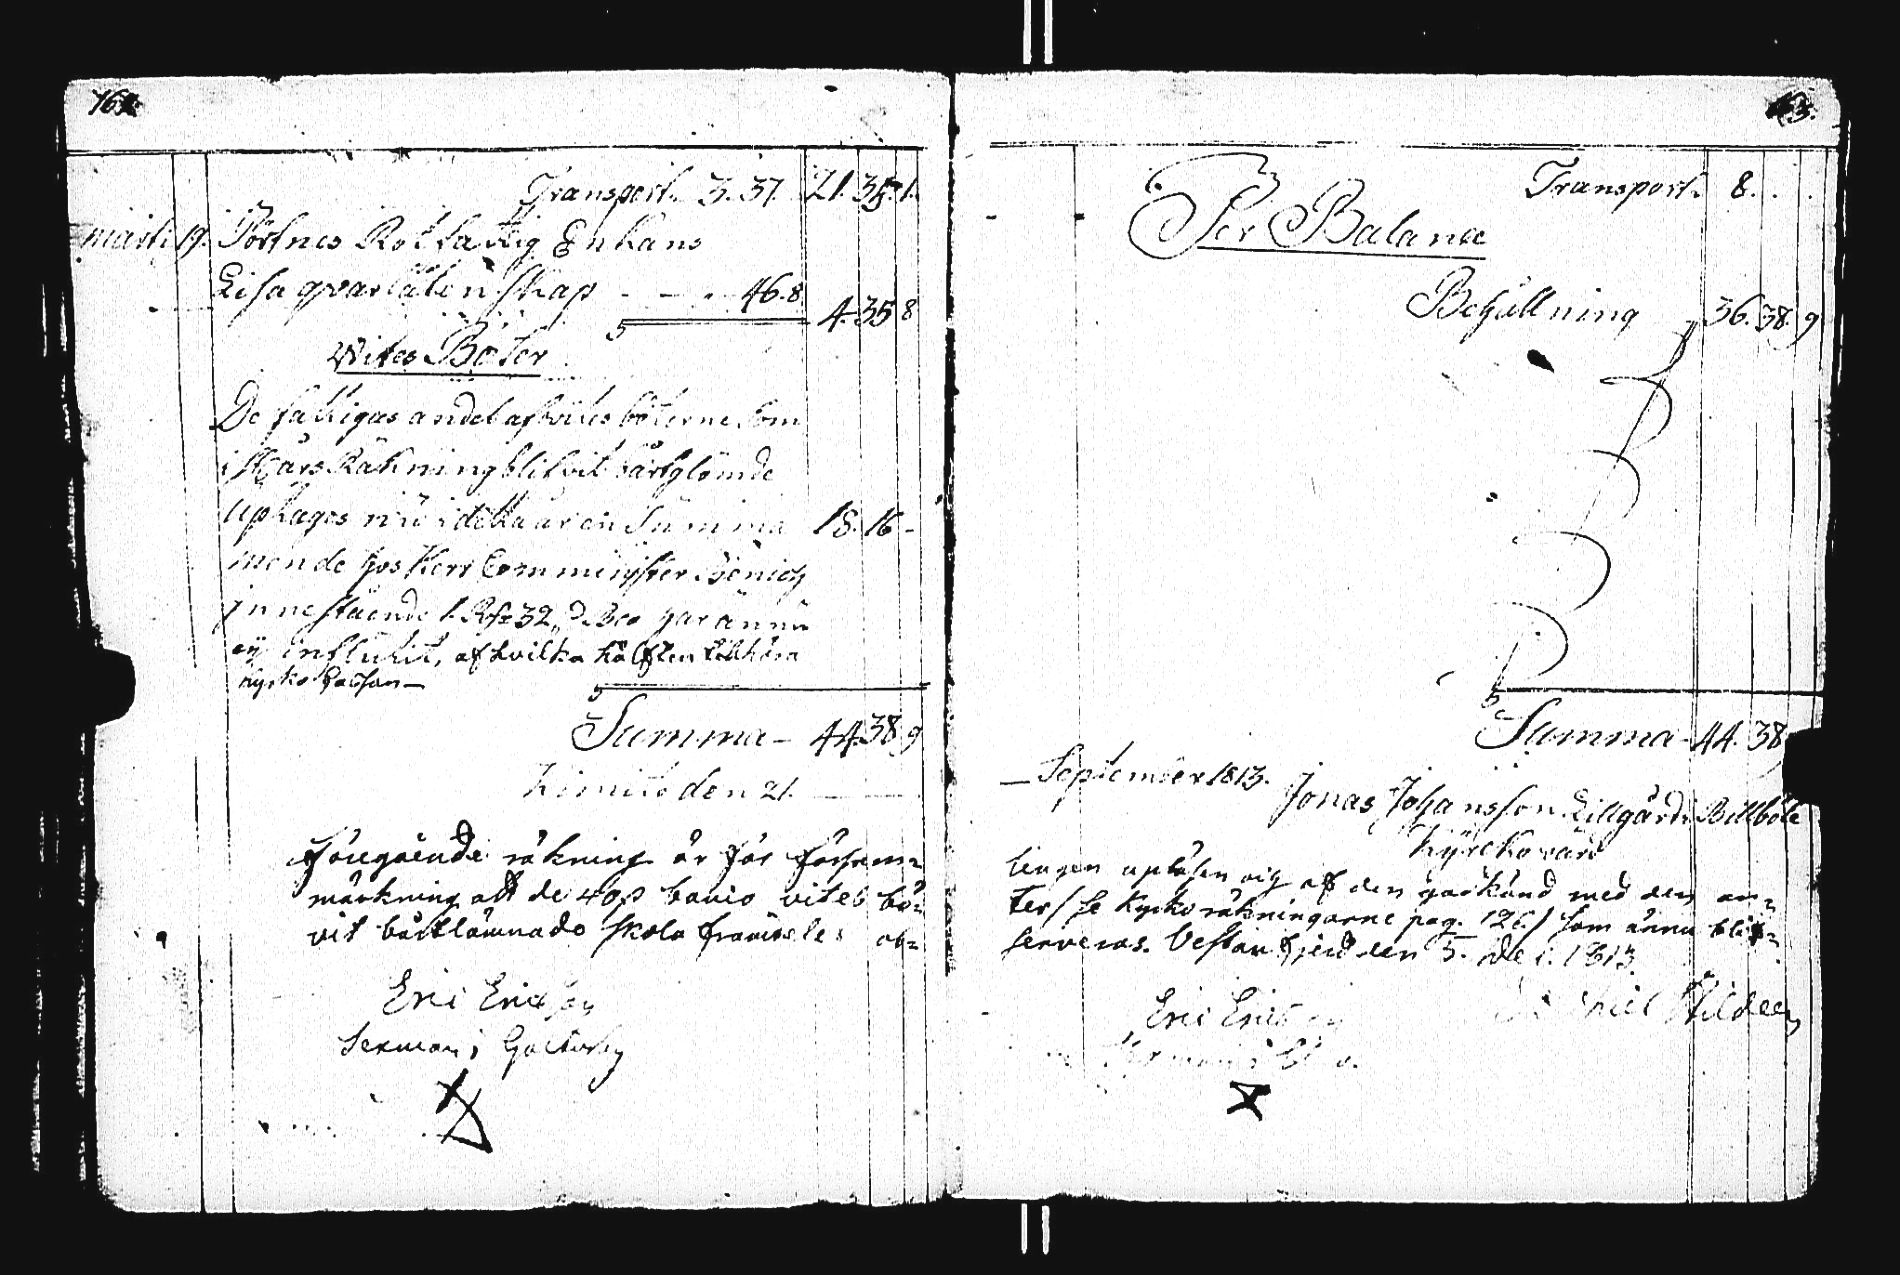 162.
Transport. 3. 37. 21. 35. 1.
Martii 19. Pörtnes Rotfattig Enkans
Lisa qvarlåtenskap - - - 46. 8. 4. 35 8
Wites Böter
De fattigas andel af vites böterne som
i Kÿrkoräkning blifvit bårtglömde
uptages nu i detta år en Summa 18. 16 -
men de hos Herr Comminister
innestående 1. Rd 32 d. Bco har ännu
ej influtit, af hvilka hälften tillhöra
Kyrko Cassan —
Summa — 44. 38 9
Kimito den 21.
Föregående räkning är för försam-
märkning att de 40 ß banco vites bö-
vit bårtlämnade skola framdeles ob-
Eric Ericsson
Sexman i Galtarby
163.
Transport. 8. . .
Per Balance
Behållning 36. 38. 9
Summa - 44. 38
— September 1813.
Jonas Johansson Lillgård i Billböle
Kyrckovärd
lingen uplåsen och af den godkänd med den an-
ter / se Kyrko räkningarne pag. 126. / som ännu blif-
serveras. Vestanfjerd den 5. Dec. 1813.
Eric Erics